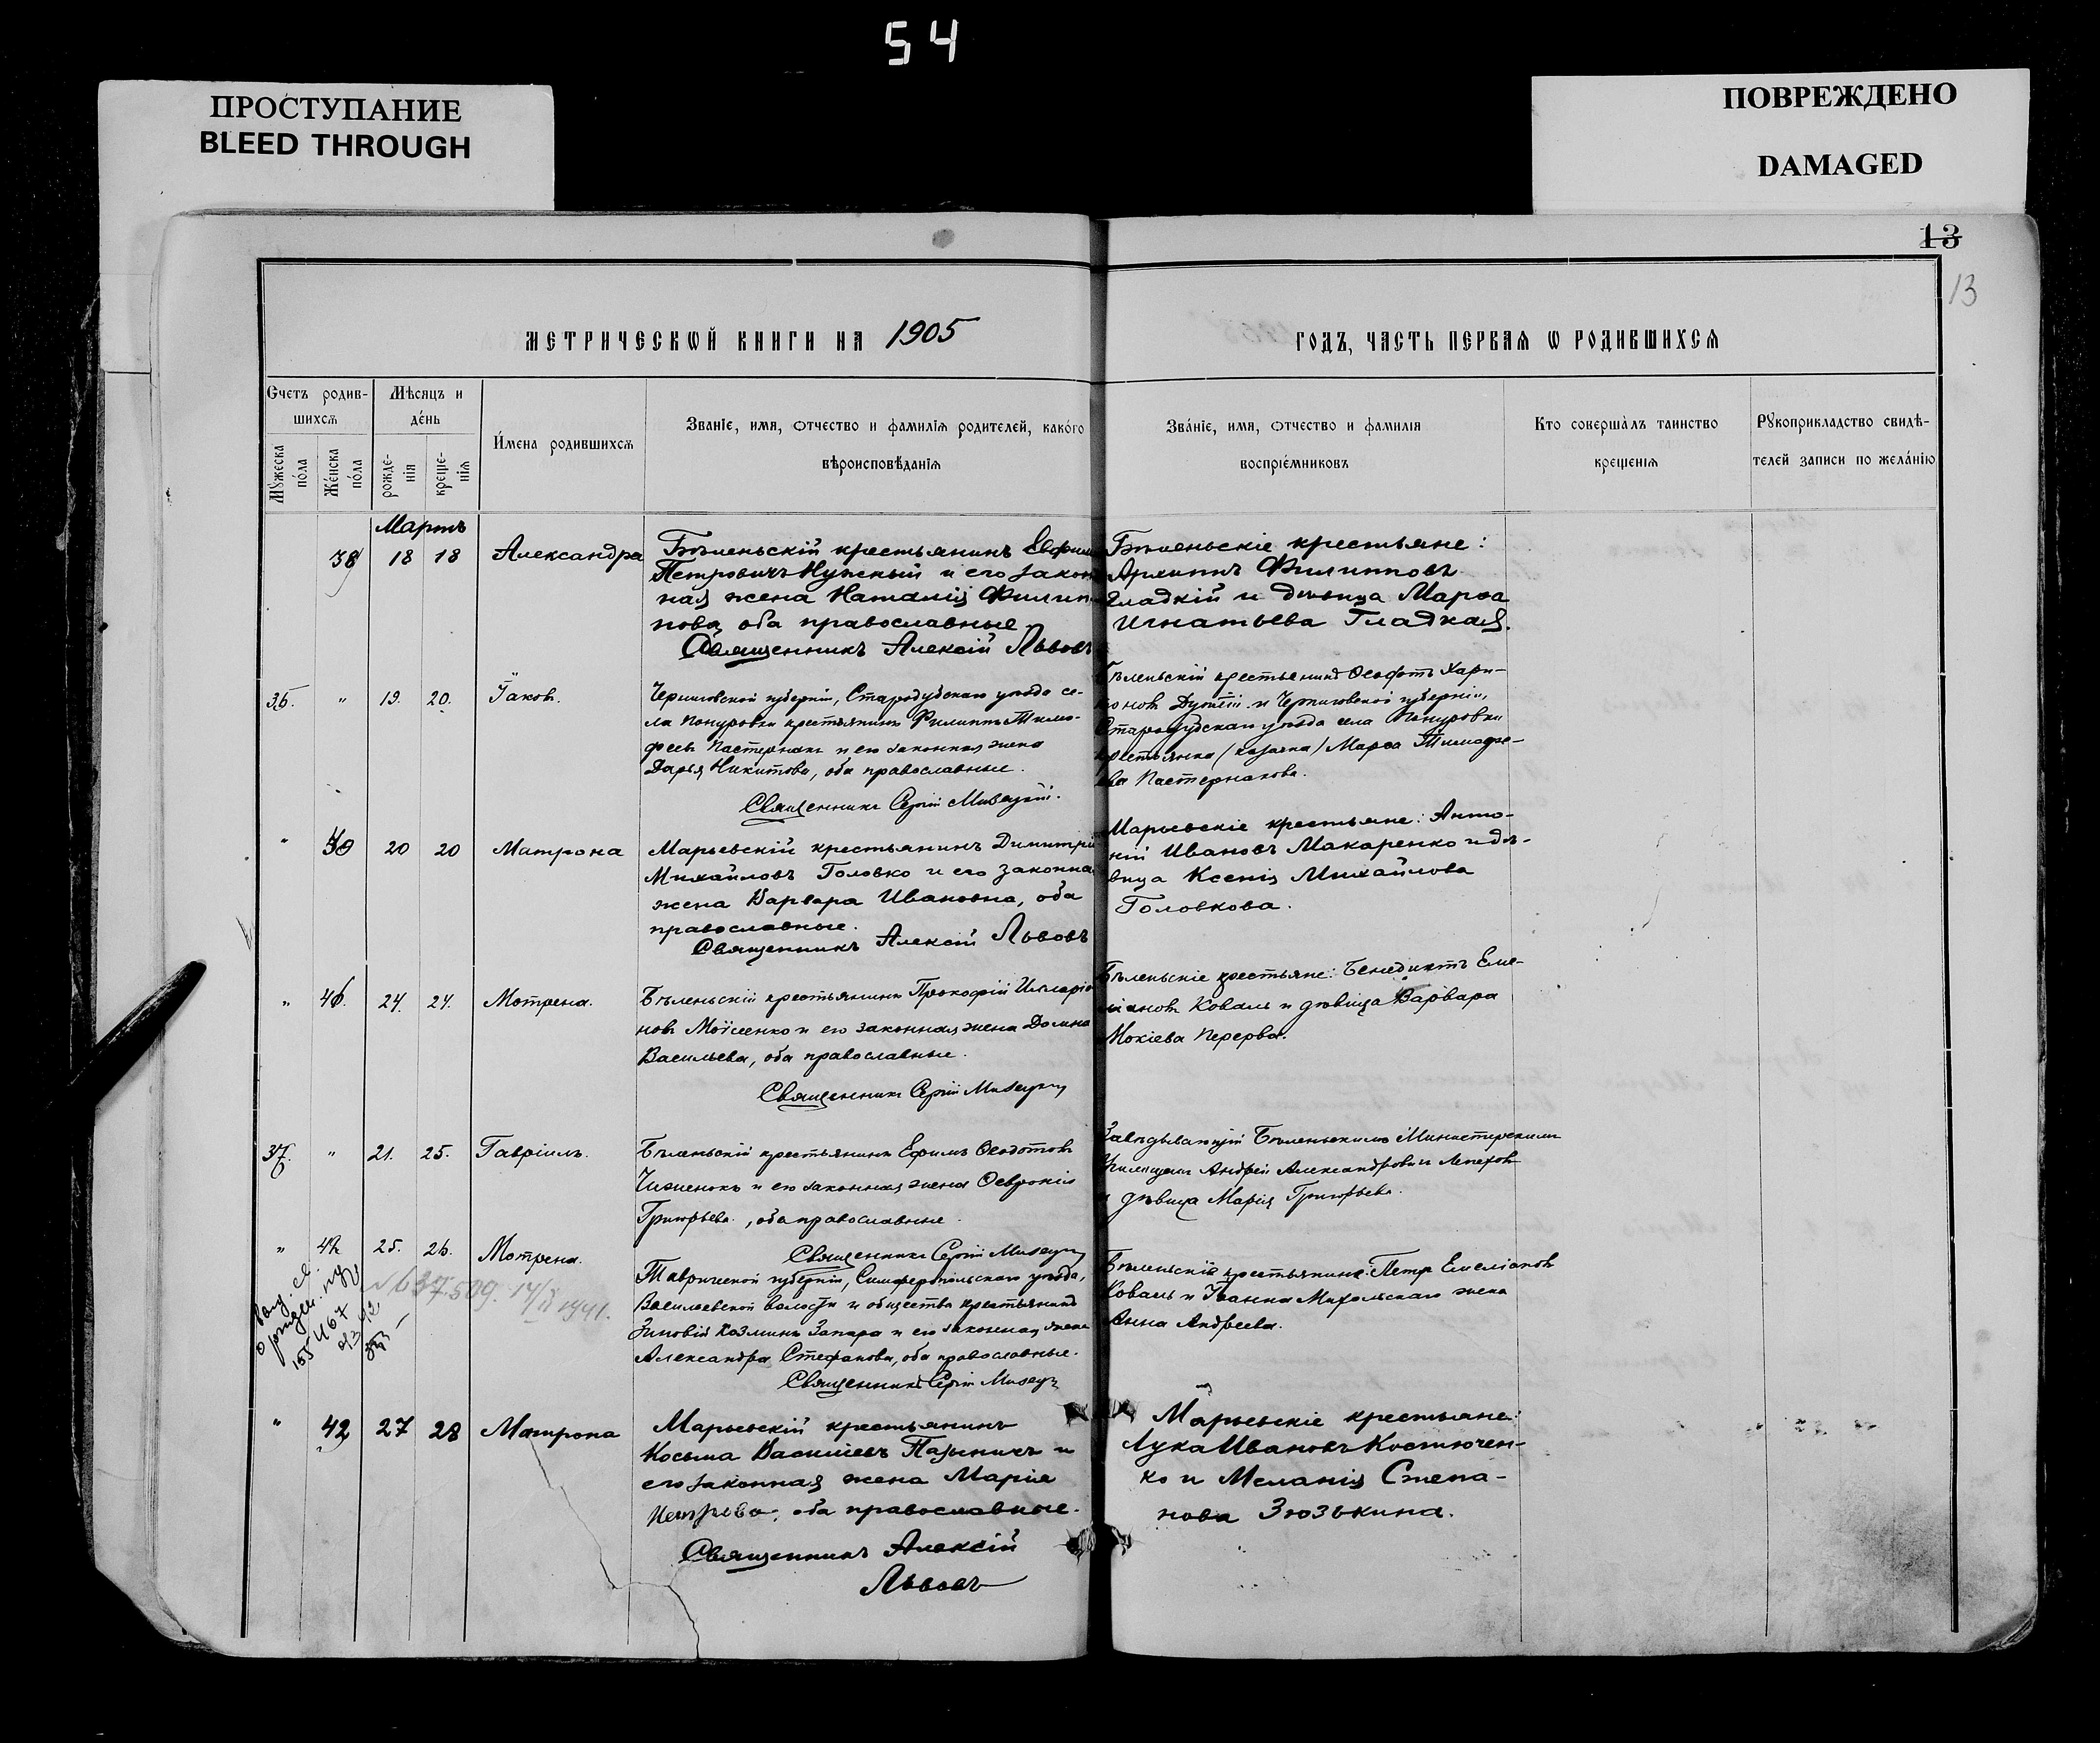 54
ПРОСТУПАНИЕ
BLEED THROUGH
ПОВРЕЖДЕНО
DAMAGED
13
13
МЕТРИЧЕСКѠЙ КНИГИ НА 1905
ГОДЪ, ЧАСТЬ ПЕРВАѦ Ѡ РОДИВШИХСѦ
Счетъ родив-
шихсѧ
Мꙋжеска
по́ла
Же́нска
по́ла
Мѣсяцъ и
де́нь
рожде-
нія
креще-
нія
И́мена родившихсѧ
Званіе, имя, отчество и фамилія родителей, како́го
вѣроисповѣ́данія
Зва́ніе, имя, отчество и фамилія
воспріе́мниковъ
Кто соверша̀лъ таинство
крещенія
Рꙋкоприкладство свидѣ-
телей записи по жела́нію
Мартъ
38 18 18 Александра
Бѣленьскій крестьянинъ Евфимій
Петровичъ Нужный и его закон
ная жена Наталія Филип
пова, оба православные.
Священникъ Алексій Львовъ
Бѣленьскіе крестьяне:
Архиппъ Филипповъ
Гладкій и дѣвица Марѳа
Игнатьева Гладкая.
36. " 19. 20. Іаковъ.
Черниговской губерніи, Стародубскаго уѣзда се-
ла Понуровки крестьянинъ Филиппъ Тимо-
феевъ Пастернакъ и его законная жена
Дарья Никитова, оба православные.
Священникъ Сергій
Бѣленьскій крестьянинъ Ѳеофотъ Хари-
тоновъ и Черниговской губерніи,
Стародубскаго уѣзда села Понуровки
крестьянка (казачка) Марѳа Тимофе-
ева Пастернакова.
" 20 20 Матрона
Марьевскій крестьянинъ Димитрій
Михайловъ Головко и его законная
жена Варвара Ивановна, оба
православные.
Священникъ Алексій Львовъ
Марьевскіе крестьяне: Анто-
ній Ивановъ Макаренко и дѣ-
вица Ксенія Михайлова
Головкова.
" 24. 24. Мотрена.
Бѣленьскій крестьянинъ Прокофій Илларіо
новъ Моисеенко и его законная жена Домна
Васильева, оба православные.
Священникъ Сергій
Бѣленьскіе крестьяне: Бенедиктъ Еме-
ліановъ Коваль и дѣвица Варвара
Мокіева Перерва.
37. " 21. 25. Гавріилъ.
Бѣленьскій крестьянинъ Ефимъ Ѳеодотовъ
и его законная жена Ѳевронія
Григорьева, оба православные.
Священникъ Сергій
Завѣдывающій Бѣленьскимъ Министерскимъ
Училищемъ Андрей Александровичъ
и дѣвица Марія Григорьева.
" 25. 26. Мотрена.
№ 637.509. 14/II 1941.
Таврической губерніи, Симферопольскаго уѣзда,
Васильевской волости и общества крестьянинъ
Зиновій Козминъ Запара и его законная жена
Александра Стефанова, оба православные.
Священникъ Сергій
Бѣленьскій крестьянинъ: Петръ Емеліановъ
Коваль и жена
Анна Андреева.
" 42 27 28 Матрона
Марьевскій крестьянинъ
Косьма Васильевъ и
его законная жена Марія
Петрова, оба православные.
Священникъ Алексій
Львовъ
Марьевскіе крестьяне:
Лука Ивановъ Костючен-
ко и Меланія Степа-
нова Зюзькина.